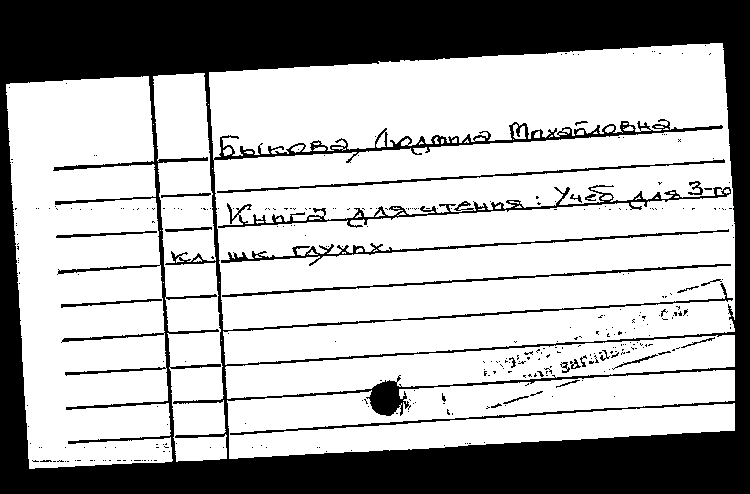 Быкова, Людмила Михайловна.
Книга для чтения : Учеб для 3-го
кл. шк. глухих.
см.
под заглавием